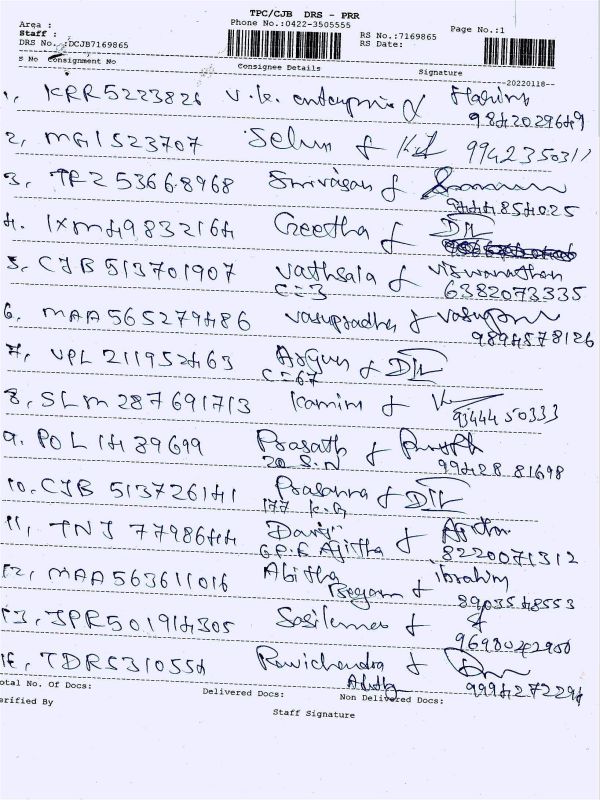 TPC/CJB DRS - PRR
Area :
Phone No.:0422-3505555
Page No.:1
Staff :
RS No.:7169865
DRS No. :DCJB7169865
RS Date:
S No Consignment No
Consignee Details
Signature
20220118
1, KRR5223826 V.K. enterprise
9842029649
2, MAI523707 Selva & 9942350311
3, TRZ53668968 Srivasan &
9444854025
4. IXM49832164 Geetha & DIL
5, CJB513701907 Vathsala & Viswanathan
C=3 6382073335
6. MAA565279486 Vasupradha &
9894578126
7, VPL211952463 Arjun & DIL
C=67
8, SLM287691713 Kamini &
9344450333
9. POL1439699 Prasath &
20 S.N 9942881698
10. CJB513726141 Prasanna & DIL
177 K.G
11, TNJ7798644 &
G.R.R Ajitha 8220071312
12, MAA563611016 Abitha Ibrahim
Begam & 8903548553
13. JPR501914305 &
9698042900
14, TDR5310554 Ravichandra &
9994272294
Total No. Of Docs:
Delivered Docs:
Non Delivered Docs:
Verified By
Staff Signature